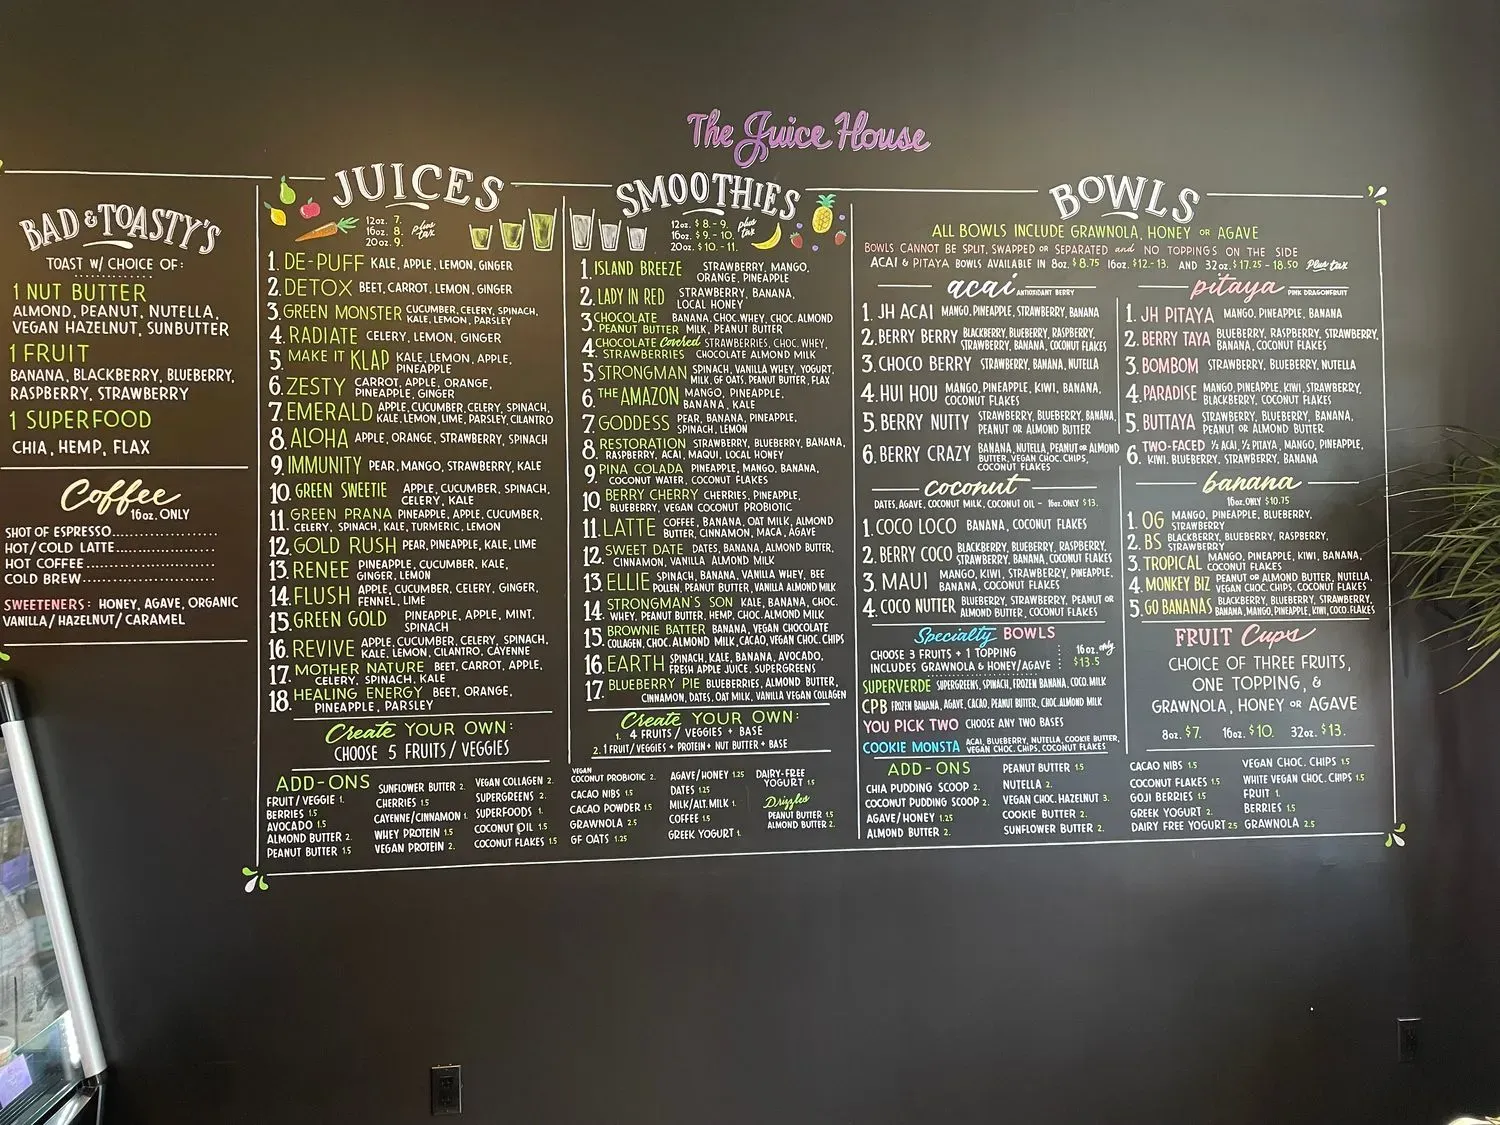 The Juice House
BAD & TOASTY'S
TOAST W/ CHOICE OF:
1 NUT BUTTER
ALMOND, PEANUT, NUTELLA,
VEGAN HAZELNUT, SUNBUTTER
1 FRUIT
BANANA, BLACKBERRY, BLUEBERRY,
RASPBERRY, STRAWBERRY
1 SUPERFOOD
CHIA, HEMP, FLAX
Coffee
16oz. ONLY
SHOT OF ESPRESSO....................
HOT/COLD LATTE....................
HOT COFFEE....................
COLD BREW....................
SWEETENERS: HONEY, AGAVE, ORGANIC
VANILLA/HAZELNUT/CARAMEL
JUICES
12oz. 7.
16oz. 8.
20oz. 9.
plus tax
1. DE-PUFF KALE, APPLE, LEMON, GINGER
2. DETOX BEET, CARROT, LEMON, GINGER
3. GREEN MONSTER CUCUMBER, CELERY, SPINACH,
KALE, LEMON, PARSLEY
4. RADIATE CELERY, LEMON, GINGER
5. MAKE IT KLAP KALE, LEMON, APPLE,
PINEAPPLE
6. ZESTY CARROT, APPLE, ORANGE,
PINEAPPLE, GINGER
7. EMERALD APPLE, CUCUMBER, CELERY, SPINACH,
KALE, LEMON, LIME, PARSLEY, CILANTRO
8. ALOHA APPLE, ORANGE, STRAWBERRY, SPINACH
9. IMMUNITY PEAR, MANGO, STRAWBERRY, KALE
10. GREEN SWEETIE APPLE, CUCUMBER, SPINACH,
CELERY, KALE
11. GREEN PRANA PINEAPPLE, APPLE, CUCUMBER,
CELERY, SPINACH, KALE, TURMERIC, LEMON
12. GOLD RUSH PEAR, PINEAPPLE, KALE, LIME
13. RENEE PINEAPPLE, CUCUMBER, KALE,
GINGER, LEMON
14. FLUSH APPLE, CUCUMBER, CELERY, GINGER,
FENNEL, LIME
15. GREEN GOLD PINEAPPLE, APPLE, MINT,
SPINACH
16. REVIVE APPLE, CUCUMBER, CELERY, SPINACH,
KALE, LEMON, CILANTRO, CAYENNE
17. MOTHER NATURE BEET, CARROT, APPLE,
CELERY, SPINACH, KALE
18. HEALING ENERGY BEET, ORANGE,
PINEAPPLE, PARSLEY
Create YOUR OWN:
CHOOSE 5 FRUITS/VEGGIES
SMOOTHIES
12oz. $8.-9.
16oz. $9.-10.
20oz. $10.-11.
plus tax
1. ISLAND BREEZE STRAWBERRY, MANGO,
ORANGE, PINEAPPLE
2. LADY IN RED STRAWBERRY, BANANA,
LOCAL HONEY
3. CHOCOLATE BANANA, CHOC. WHEY, CHOC. ALMOND
PEANUT BUTTER MILK, PEANUT BUTTER
4. CHOCOLATE Covered STRAWBERRIES, CHOC. WHEY,
STRAWBERRIES CHOCOLATE ALMOND MILK
5. STRONGMAN SPINACH, VANILLA WHEY, YOGURT,
MILK, GF OATS, PEANUT BUTTER, FLAX
6. THE AMAZON MANGO, PINEAPPLE,
BANANA, KALE
7. GODDESS PEAR, BANANA, PINEAPPLE,
SPINACH, LEMON
8. RESTORATION STRAWBERRY, BLUEBERRY, BANANA,
RASPBERRY, ACAI, MAQUI, LOCAL HONEY
9. PINA COLADA PINEAPPLE, MANGO, BANANA,
COCONUT WATER, COCONUT FLAKES
10. BERRY CHERRY CHERRIES, PINEAPPLE,
BLUEBERRY, VEGAN COCONUT PROBIOTIC
11. LATTE COFFEE, BANANA, OAT MILK, ALMOND
BUTTER, CINNAMON, MACA, AGAVE
12. SWEET DATE DATES, BANANA, ALMOND BUTTER,
CINNAMON, VANILLA ALMOND MILK
13. ELLIE SPINACH, BANANA, VANILLA WHEY, BEE
POLLEN, PEANUT BUTTER, VANILLA ALMOND MILK
14. STRONGMAN'S SON KALE, BANANA, CHOC.
WHEY, PEANUT BUTTER, HEMP, CHOC. ALMOND MILK
15. BROWNIE BATTER BANANA, VEGAN CHOCOLATE
COLLAGEN, CHOC. ALMOND MILK, CACAO, VEGAN CHOC. CHIPS
16. EARTH SPINACH, KALE, BANANA, AVOCADO,
FRESH APPLE JUICE, SUPERGREENS
17. BLUEBERRY PIE BLUEBERRIES, ALMOND BUTTER,
CINNAMON, DATES, OAT MILK, VANILLA VEGAN COLLAGEN
Create YOUR OWN:
1. 4 FRUITS / VEGGIES + BASE
2. 1 FRUIT/VEGGIES + PROTEIN + NUT BUTTER + BASE
ADD-ONS
FRUIT/VEGGIE 1.
BERRIES 1.5
AVOCADO 1.5
ALMOND BUTTER 2.
PEANUT BUTTER 1.5
SUNFLOWER BUTTER 2.
CHERRIES 1.5
CAYENNE/CINNAMON 1.
WHEY PROTEIN 1.5
VEGAN PROTEIN 2.
VEGAN COLLAGEN 2.
SUPERGREENS 2.
SUPERFOODS 1.
COCONUT OIL 1.5
COCONUT FLAKES 1.5
VEGAN
COCONUT PROBIOTIC 2.
CACAO NIBS 1.5
CACAO POWDER 1.5
GRAWNOLA 2.5
GF OATS 1.25
AGAVE/HONEY 1.25
DATES 1.25
MILK/ALT. MILK 1.
COFFEE 1.5
GREEK YOGURT 1.
DAIRY-FREE
YOGURT 1.5
Drizzles
PEANUT BUTTER 1.5
ALMOND BUTTER 2.
BOWLS
ALL BOWLS INCLUDE GRAWNOLA, HONEY OR AGAVE
BOWLS CANNOT BE SPLIT, SWAPPED OR SEPARATED and NO TOPPINGS ON THE SIDE
ACAI & PITAYA BOWLS AVAILABLE IN 8oz. $8.75 16oz. $12.-13. AND 32oz. $17.25-18.50 Plus tax
acai ANTIOXIDANT BERRY
1. JH ACAI MANGO, PINEAPPLE, STRAWBERRY, BANANA
2. BERRY BERRY BLACKBERRY, BLUEBERRY, RASPBERRY,
STRAWBERRY, BANANA, COCONUT FLAKES
3. CHOCO BERRY STRAWBERRY, BANANA, NUTELLA
4. HUI HOU MANGO, PINEAPPLE, KIWI, BANANA,
COCONUT FLAKES
5. BERRY NUTTY STRAWBERRY, BLUEBERRY, BANANA,
PEANUT OR ALMOND BUTTER
6. BERRY CRAZY BANANA, NUTELLA, PEANUT OR ALMOND
BUTTER, VEGAN CHOC. CHIPS,
COCONUT FLAKES
coconut
DATES, AGAVE, COCONUT MILK, COCONUT OIL - 16oz. ONLY $13.
1. COCO LOCO BANANA, COCONUT FLAKES
2. BERRY COCO BLACKBERRY, BLUEBERRY, RASPBERRY,
STRAWBERRY, BANANA, COCONUT FLAKES
3. MAUI MANGO, KIWI, STRAWBERRY, PINEAPPLE,
BANANA, COCONUT FLAKES
4. COCO NUTTER BLUEBERRY, STRAWBERRY, PEANUT OR
ALMOND BUTTER, COCONUT FLAKES
Specialty BOWLS
CHOOSE 3 FRUITS + 1 TOPPING
INCLUDES GRAWNOLA & HONEY/AGAVE
16oz. only
$13.5
SUPERVERDE SUPERGREENS, SPINACH, FROZEN BANANA, COCO. MILK
CPB FROZEN BANANA, AGAVE, CACAO, PEANUT BUTTER, CHOC. ALMOND MILK
YOU PICK TWO CHOOSE ANY TWO BASES
COOKIE MONSTA ACAI, BLUEBERRY, NUTELLA, COOKIE BUTTER,
VEGAN CHOC. CHIPS, COCONUT FLAKES
pitaya PINK DRAGONFRUIT
1. JH PITAYA MANGO, PINEAPPLE, BANANA
2. BERRY TAYA BLUEBERRY, RASPBERRY, STRAWBERRY,
BANANA, COCONUT FLAKES
3. BOMBOM STRAWBERRY, BLUEBERRY, NUTELLA
4. PARADISE MANGO, PINEAPPLE, KIWI, STRAWBERRY,
BLACKBERRY, COCONUT FLAKES
5. BUTTAYA STRAWBERRY, BLUEBERRY, BANANA,
PEANUT OR ALMOND BUTTER
6. TWO-FACED ½ ACAI, ½ PITAYA, MANGO, PINEAPPLE,
KIWI, BLUEBERRY, STRAWBERRY, BANANA
banana
16oz. ONLY $10.75
1. OG MANGO, PINEAPPLE, BLUEBERRY,
STRAWBERRY
2. BS BLACKBERRY, BLUEBERRY, RASPBERRY,
STRAWBERRY
3. TROPICAL MANGO, PINEAPPLE, KIWI, BANANA,
COCONUT FLAKES
4. MONKEY BIZ PEANUT OR ALMOND BUTTER, NUTELLA,
VEGAN CHOC. CHIPS, COCONUT FLAKES
5. GO BANANAS BLACKBERRY, BLUEBERRY, STRAWBERRY,
BANANA, MANGO, PINEAPPLE, KIWI, COCO. FLAKES
FRUIT Cups
CHOICE OF THREE FRUITS,
ONE TOPPING, &
GRAWNOLA, HONEY OR AGAVE
8oz. $7. 16oz. $10. 32oz. $13.
ADD-ONS
CHIA PUDDING SCOOP 2.
COCONUT PUDDING SCOOP 2.
AGAVE/HONEY 1.25
ALMOND BUTTER 2.
PEANUT BUTTER 1.5
NUTELLA 2.
VEGAN CHOC. HAZELNUT 3.
COOKIE BUTTER 2.
SUNFLOWER BUTTER 2.
CACAO NIBS 1.5
COCONUT FLAKES 1.5
GOJI BERRIES 1.5
GREEK YOGURT 2.
DAIRY FREE YOGURT 2.5
VEGAN CHOC. CHIPS 1.5
WHITE VEGAN CHOC. CHIPS 1.5
FRUIT 1.
BERRIES 1.5
GRAWNOLA 2.5